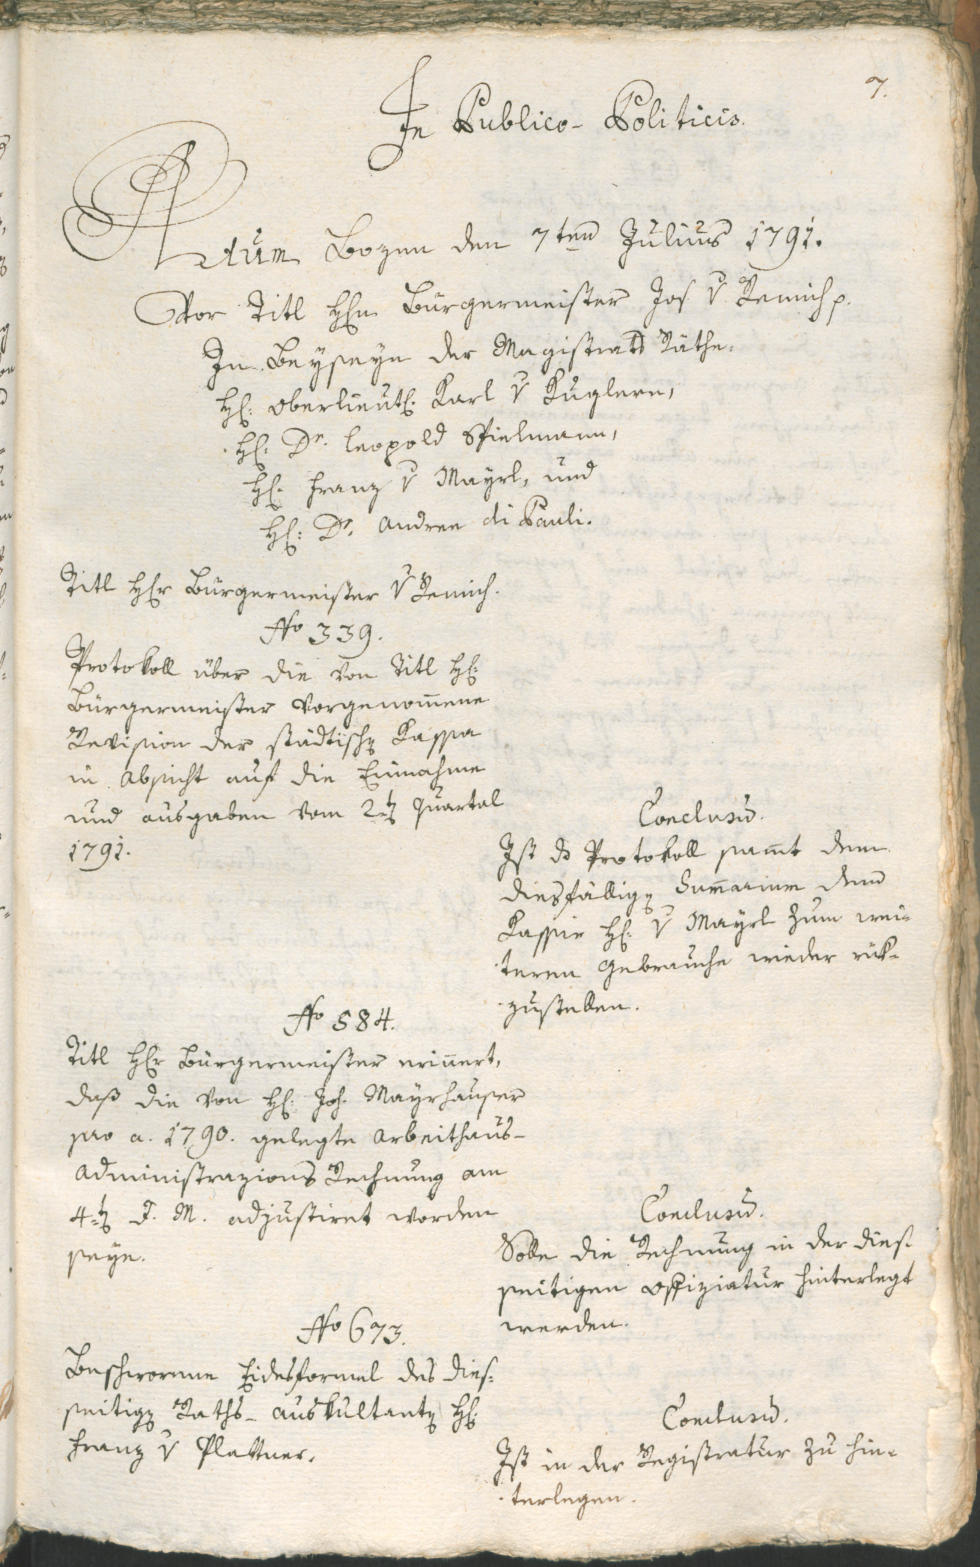 7.
In Publico-Politicis.
Actum Bozen den 7ten Julius 1791.
Vor Titl Hhn Bürgermeister Jos v Remich p.
In Beyseyn der Magistrats Räthe.
H: oberlieut: Karl v Kuglern,
H: Dr. Leopold Spielmann,
H: Franz v Mayrl, und
H: Dr. Andree di Pauli.
Titl Hhr Bürgermeister v Remich.
No 339.
Protokoll über die von Titl H:
Bürgermeister vorgenom̄ene
Revision der städtisch Kassa
in Absicht auf die Einnahme
und ausgaben vom 2t Quartal
1791.
Conclusū.
Ist ds Protokoll sam̄t dem
diesfällig Sum̄arium dem
Kassir H: v Mayrl zum wei-
teren Gebrauche wieder rük-
zustellen.
No 584.
Titl Hhr Bürgermeister erin̄ert,
daß die von H: Joh. Mayrhauser
pro a. 1790. gelegte Arbeithaus-
Administrazions Rechnung am
4t d. M. adjustiret worden
seye.
Conclusū.
Solle die Rechnung in der dies-
seitigen Offiziatur hinterlegt
werden.
No 673.
Beschworene Eidesformel des dies-
seitig Raths-auskultant H:
Franz v Plattner.
Conclusū.
Ist in der Registratur zu hin-
terlegen.